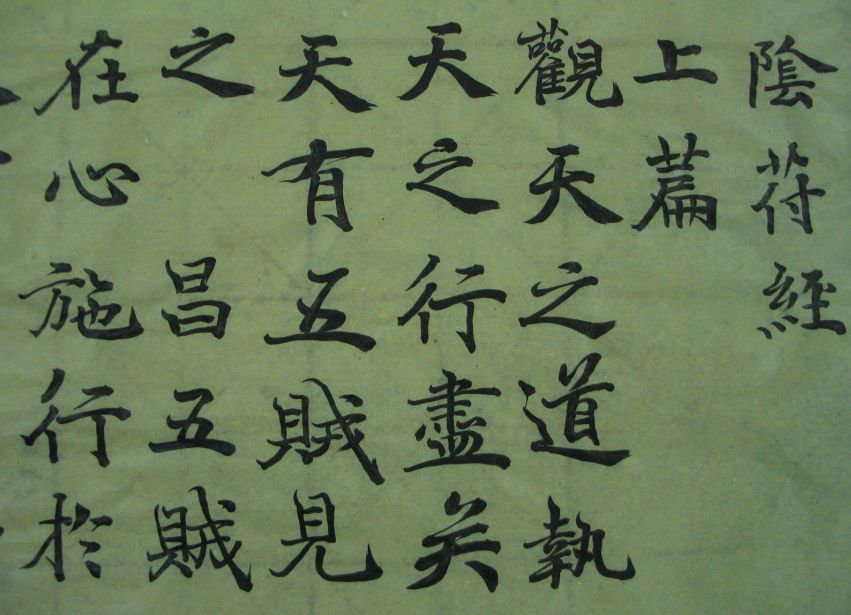 陰苻經
上篇
觀天之道執
天之行盡矣
天有五賊見
之昌五賊
在心施行於